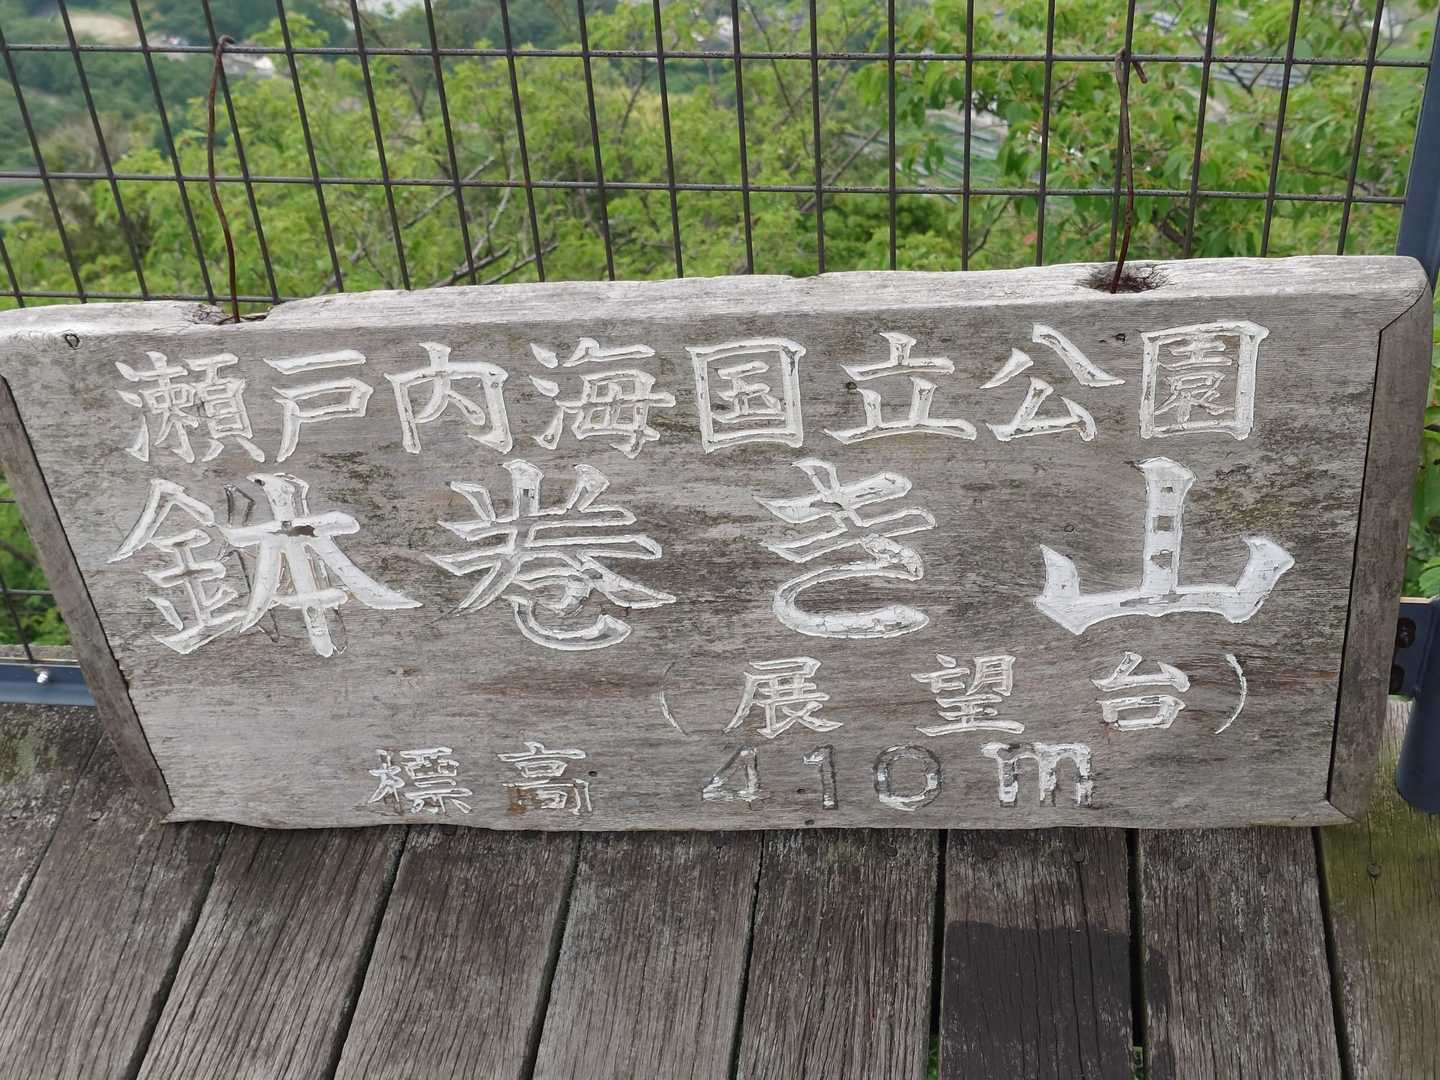 瀬戸内海国立公園
鉢巻き山
（展望台）
標高 410m